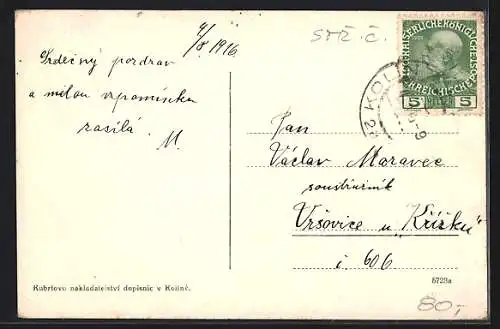 4/8 1916.
Srdečný pozdrav
a milou vzpomínku
zasílá
M.
stř. č.
KAISERLICHE KÖNIGLICHE
ÖSTERREICHISCHE
5 5
KOLÍN
Pan
Václav Moravec
soustružník
Vršovice u "Křížku"
č. 606
Kubrtovo nakladatelství dopisnic v Kolíně.
6729a
80,-